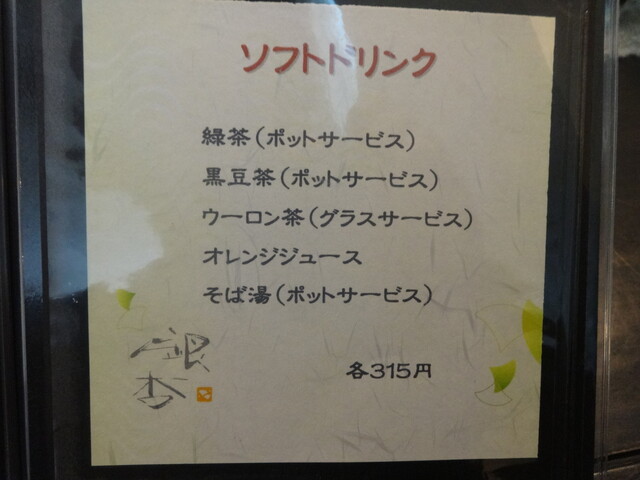 ソフトドリンク
緑茶(ポットサービス)
黒豆茶(ポットサービス)
ウーロン茶(グラスサービス)
オレンジジュース
そば湯(ポットサービス)
各315円
銀杏